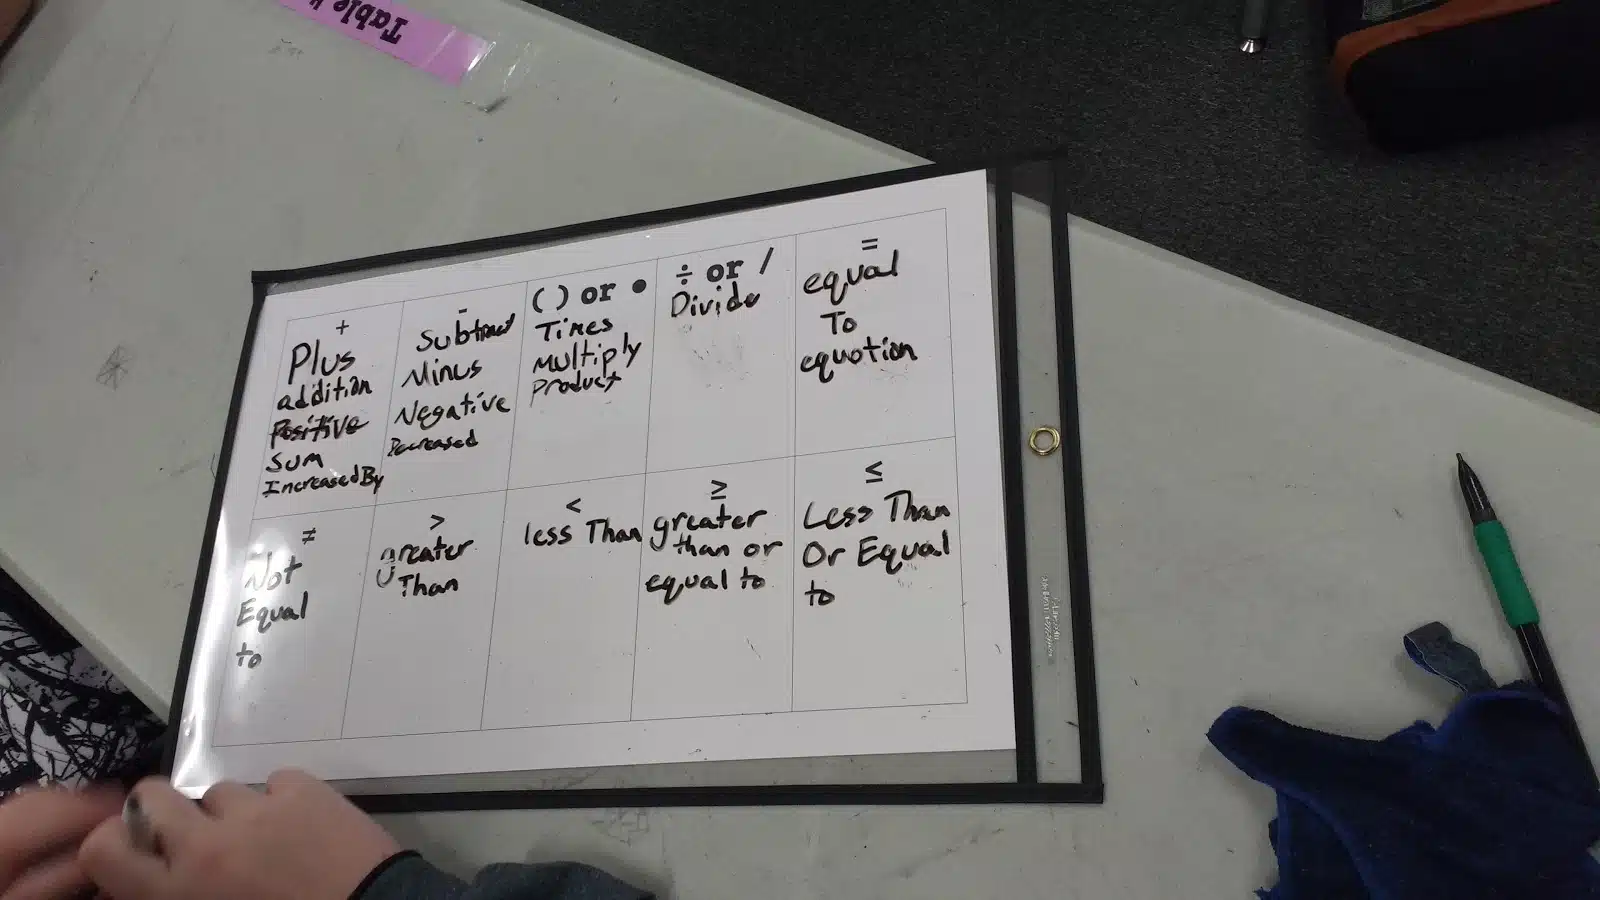 Table #
+
Plus
addition
Positive
Sum
Increased By
-
Subtract
Minus
Negative
Decreased
( ) or •
Times
Multiply
Product
÷ or /
Divide
=
equal
To
equation
≠
Not
Equal
to
>
greater
Than
<
less Than
≥
greater
than or
equal to
≤
Less Than
Or Equal
to